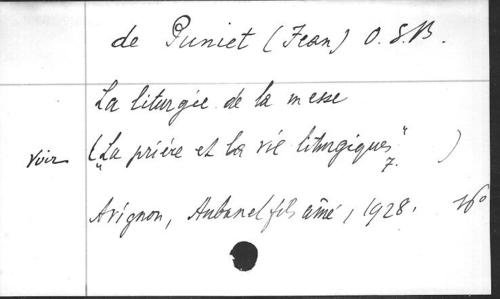 de Puniet (Jean) O.S.B.
La liturgie de la messe
voir ("La prière et la vie liturgiques" 7. )
Avignon, Aubanel fils aîné, 1928. 16°